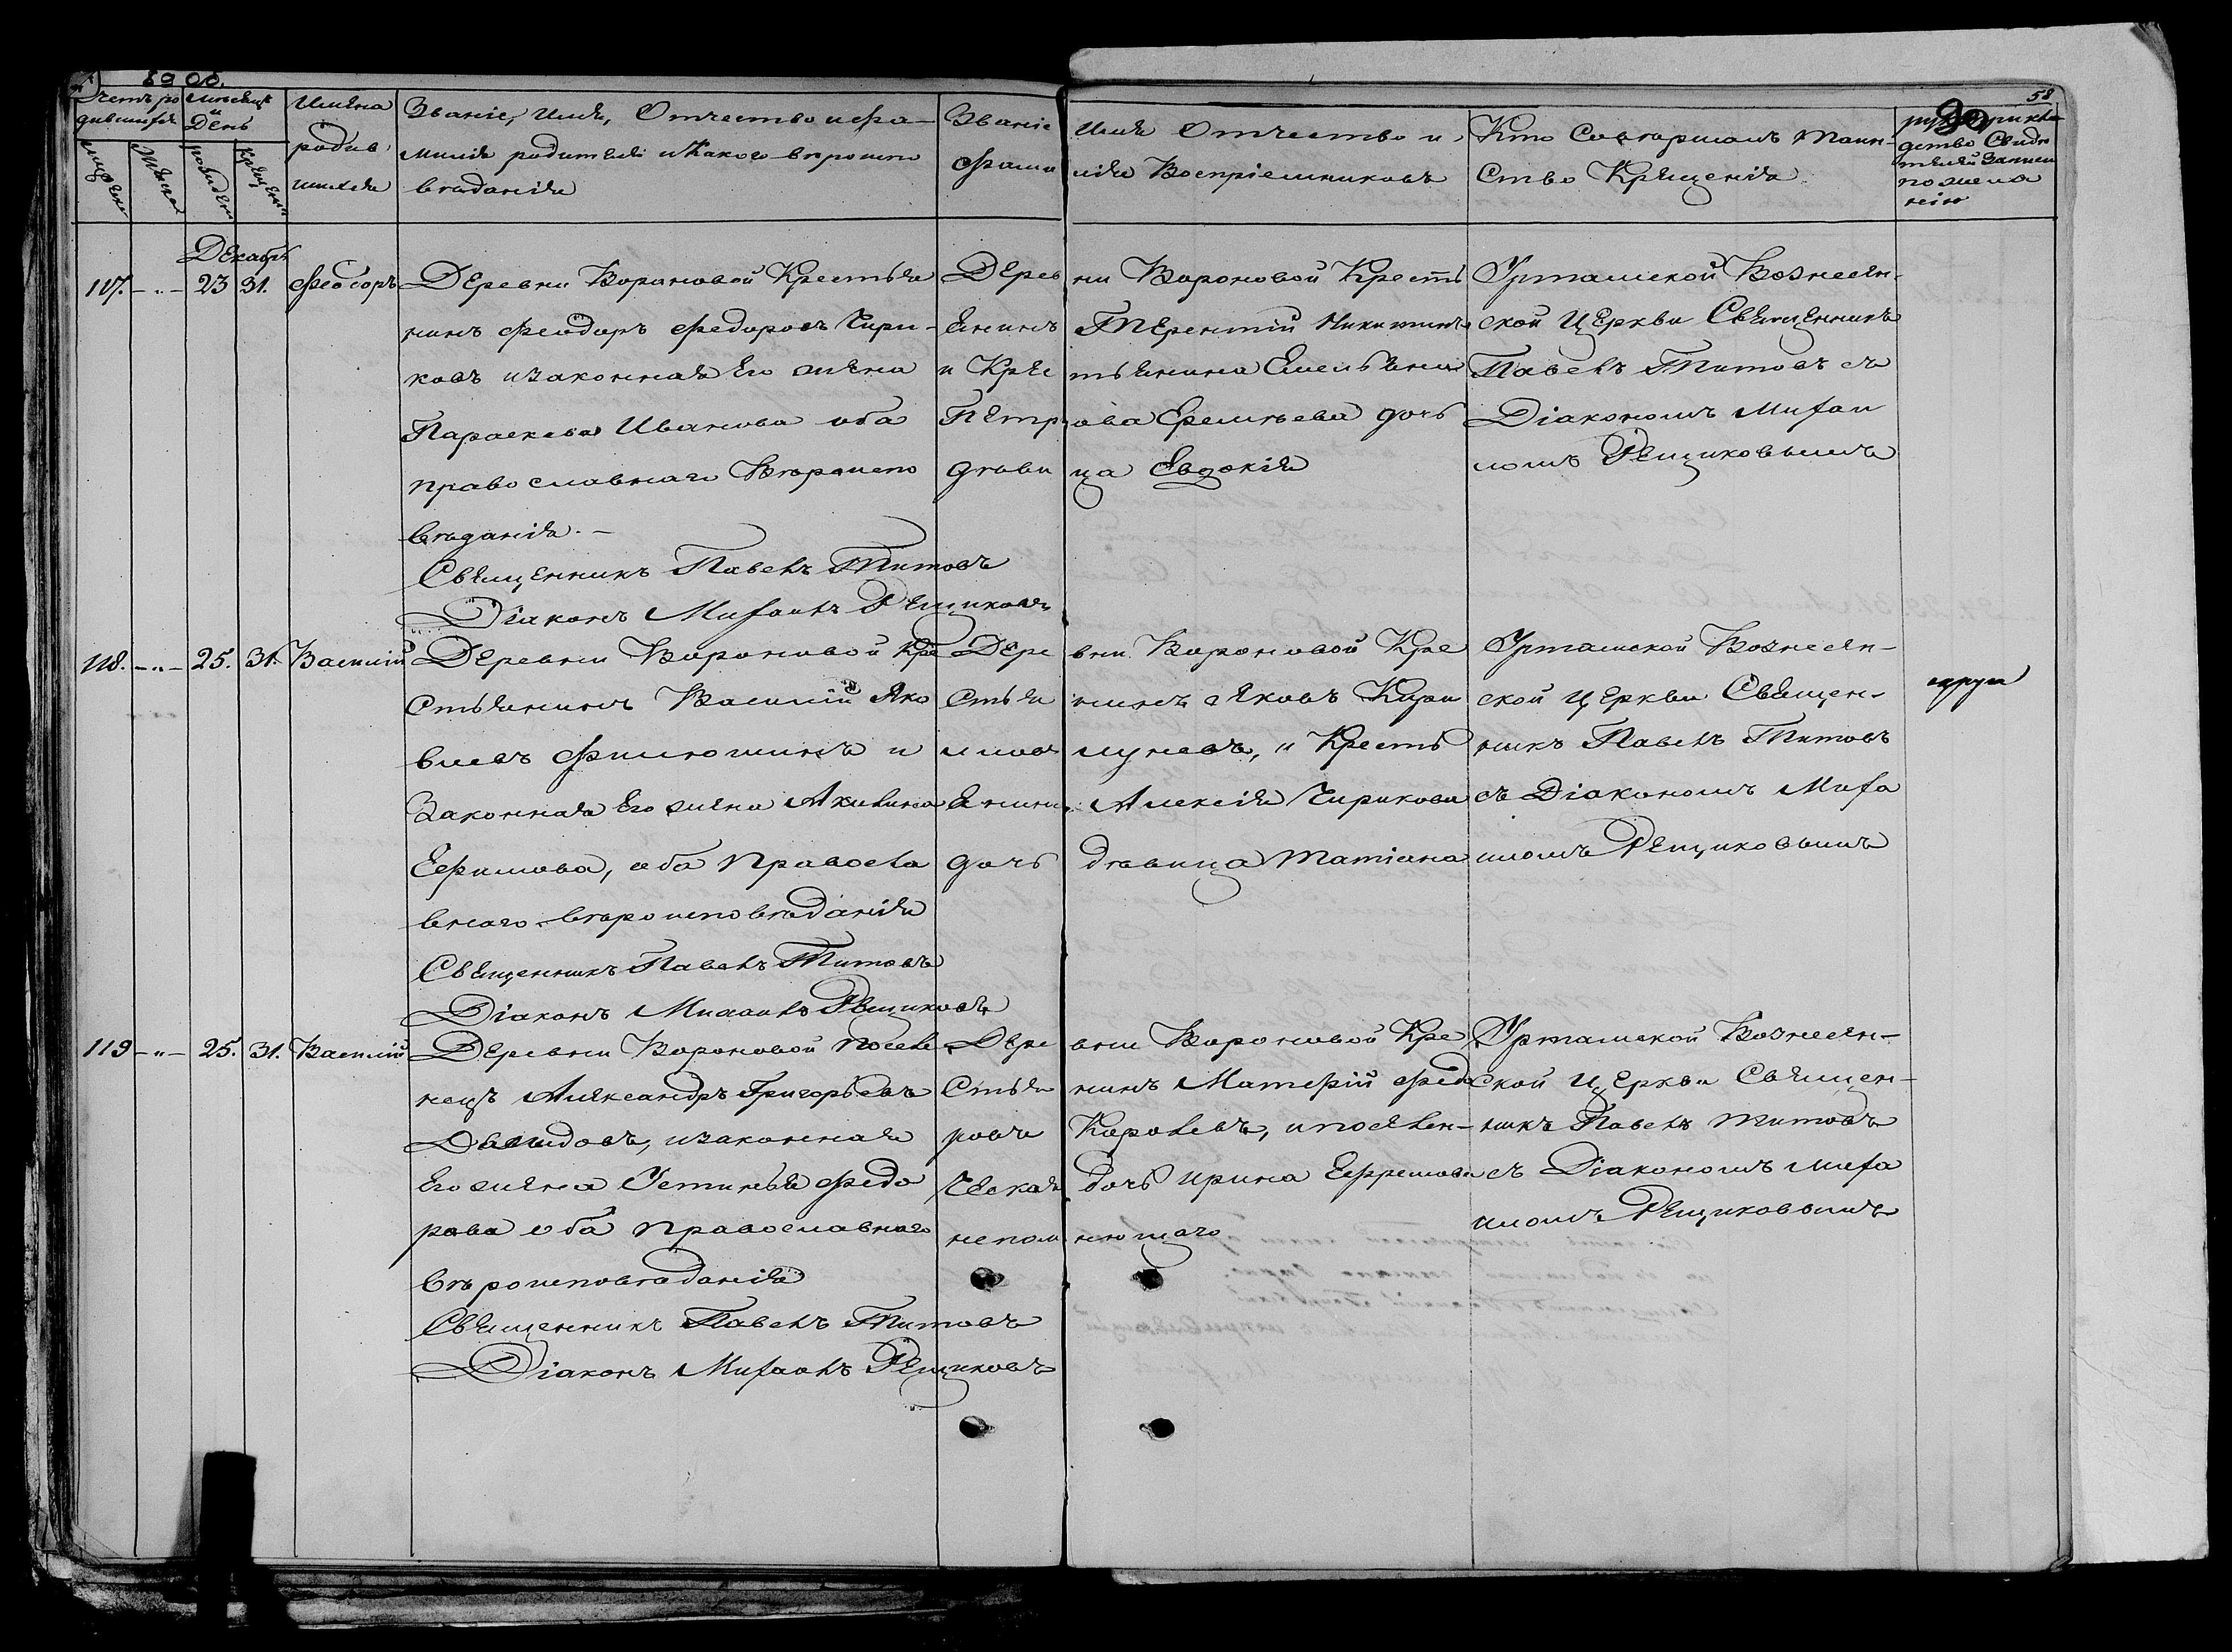 58
Счетъ ро
дившихся
Мѣсяцъ
и
День
Имена
родив
шихся
Званіе, Имя, Отчество и фа-
милія родителей и какого вѣроиспо
вѣданія
Званіе
фами
Имя Отчество и
лія Воспріемниковъ
Кто Совершалъ Таин-
ство Крещенія
рукоприкла
дство Свидѣ
телей записи
по жела
нію
Декабрь
117. 23 31. Феодоръ
Деревни Вороновой Крестья
нинъ Феодоръ Федоровъ Чири-
ковъ и законная Его жена
Параскева Иванова оба
православнаго Вѣроиспо
вѣданія.-
Священникъ Павелъ Титовъ
Діаконъ Михаилъ Рещиковъ
Дерев ни Вороновой Кресть
янинъ Терентій Никитинъ
и Крес тьянина Емельяна
Петр ова Ефельева дочь
дѣви ца Евдокія
Урташской Вознесен-
ской Церкви Священникъ
Павелъ Титовъ съ
Діакономъ Михаи
ломъ Рещиковымъ
118. 25. 31. Василій
Деревни Вороновой Кре
стьянинъ Василій Яко
влевъ Филюшинъ и
Законная Его жена Акилина
Ефимова, оба Правосла
внаго вѣроисповѣданія
Священникъ Павелъ Титовъ
Діаконъ Михаилъ Рещиковъ
Дере вни Вороновой Кре
стья нинъ Яковъ Кири
лловъ, и Кресть
янина Алексія Чирикова
дочь дѣвица Татіана
Урташской Вознесен-
ской Церкви Священ-
никъ Павелъ Титовъ
съ Діакономъ Миха
иломъ Рещиковымъ
119 25. 31. Василій
Деревни Вороновой Поселе
нецъ Александръ Григорьевъ
Давыдовъ, и законная
Его жена Устинья Федо
рова оба Православнаго
вѣроисповѣданія
Священникъ Павелъ Титовъ
Діаконъ Михаилъ Рещиковъ
Дере вни Вороновой Кре
стья нинъ Матфій Федо
ровъ Королевъ, и поселен-
ческая дочь Ирина Ефремова
непом нющаго
Урташской Вознесен-
ской Церкви Священ-
никъ Павелъ Титовъ
съ Діакономъ Миха
иломъ Рещиковымъ